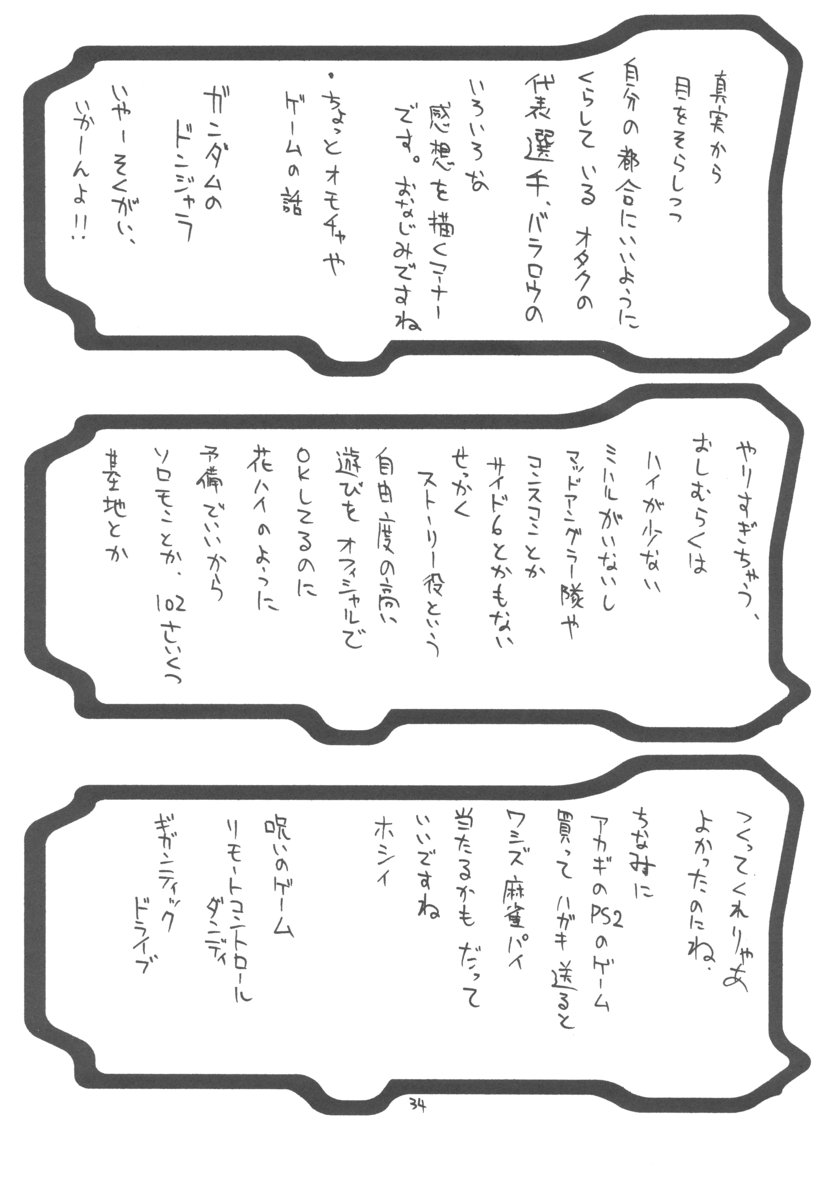 真実から
目をそらしつつ
自分の都合にいいように
くらして いる オタクの
代表選手、バラロウの
いろいろな
感想を描くコーナー
です。おなじみですね
・ちょっと オモチャや
ゲームの話
ガンダムの
ドンジャラ
いやーそくがい、
いかーんよ!!
やりすぎちゃう、
おしむらくは
ハイが少ない
ミハルがいないし
マッドアングラー隊や
コンスコンとか
サイド6とかもない
せっかく
ストーリー役という
自由度の高い
遊びを オフィシャルで
OKしてるのに
花ハイのように
予備でいいから
ソロモンとか、102さいくつ
基地とか
つくってくれりゃあ
よかったのにね.
ちなみに
アカギのPS2のゲーム
買って ハガキ 送ると
ワシズ 麻雀パイ
当たるかも だって
いいですね
ホシイ
呪いのゲーム
リモートコントロール
ダンディ
ギガンティック
ドライブ
34